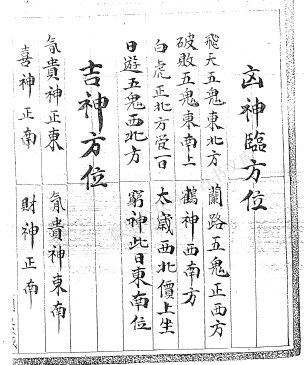 凶神臨方位
飛天五鬼東北方 蘭路五鬼正西方
破敗五鬼東南上 鶴神西南方
白虎正北方受百 太歲西北價上坐
日遊五鬼西北方 窮神此日東南位
吉神方位
氤貴神正東 氤貴神東南
喜神正南 財神正南